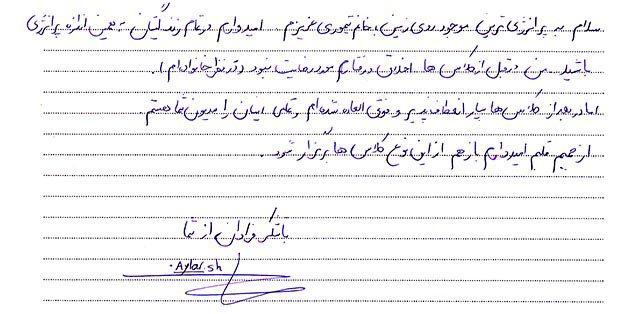 سلام به پر انرژی ترین موجود روی زمین، خانم تیموری عزیزم. امیدوارم در تمام زندگیتان به همین اندازه پر انرژی
باشید. من در قبل از کلاس ها اخلاق و رفتارم مورد رضایت نبود (در نظر خانواده ام).
اما در بعد از کلاس ها بسیار انعطاف پذیر و فوق العاده شده ام و تمامی ایشان را مدیون شما هستم.
از صمیم قلبم امیدوارم باز هم از این نوع کلاس ها برگزار شود.
با تشکر فراوان از شما
Aylar.sh